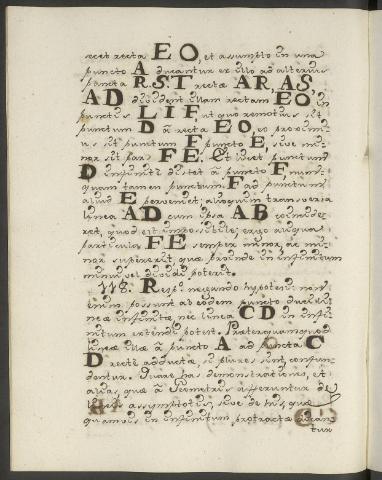 secet recta EO, et assumpto in una
puncto A ducantur ex illo ad alterius
puncta R.S.T rectæ AR, AS,
AD dividens illam rectam EO in
punctis L I F ut quo remotius sit
punctum D à recta EO, eo proximi-
us sit punctum F puncto E, sive mi-
nor sit pars FE. Et licet punctum
D infinite distet à puncto F, nun-
quam tamen punctum F ad punctum
aliud E perveniet; alioquin transversa
linea AD cum ipsa AB coincide-
ret, quod est impossibile; ergo aliqua
particula FE semper minor, ac mi-
nor supererit, quæ proinde in infinitum
minui vel dividi poterit.
118. Resp. negando hypothesim non
enim possunt ab eodem puncto duci li-
neæ infinitæ, nec linea CD in infi-
nitum extendi potest. Præterquamquod
lineæ illæ à puncto A ad puncta C
D recte adductæ, si plures sint, confun-
dentur. Quare has demonstrationes, et
alias, quæ à Geometris afferuntur de
assymptotis, sive de his, quæ
quamvis in infinitum protractæ
tur